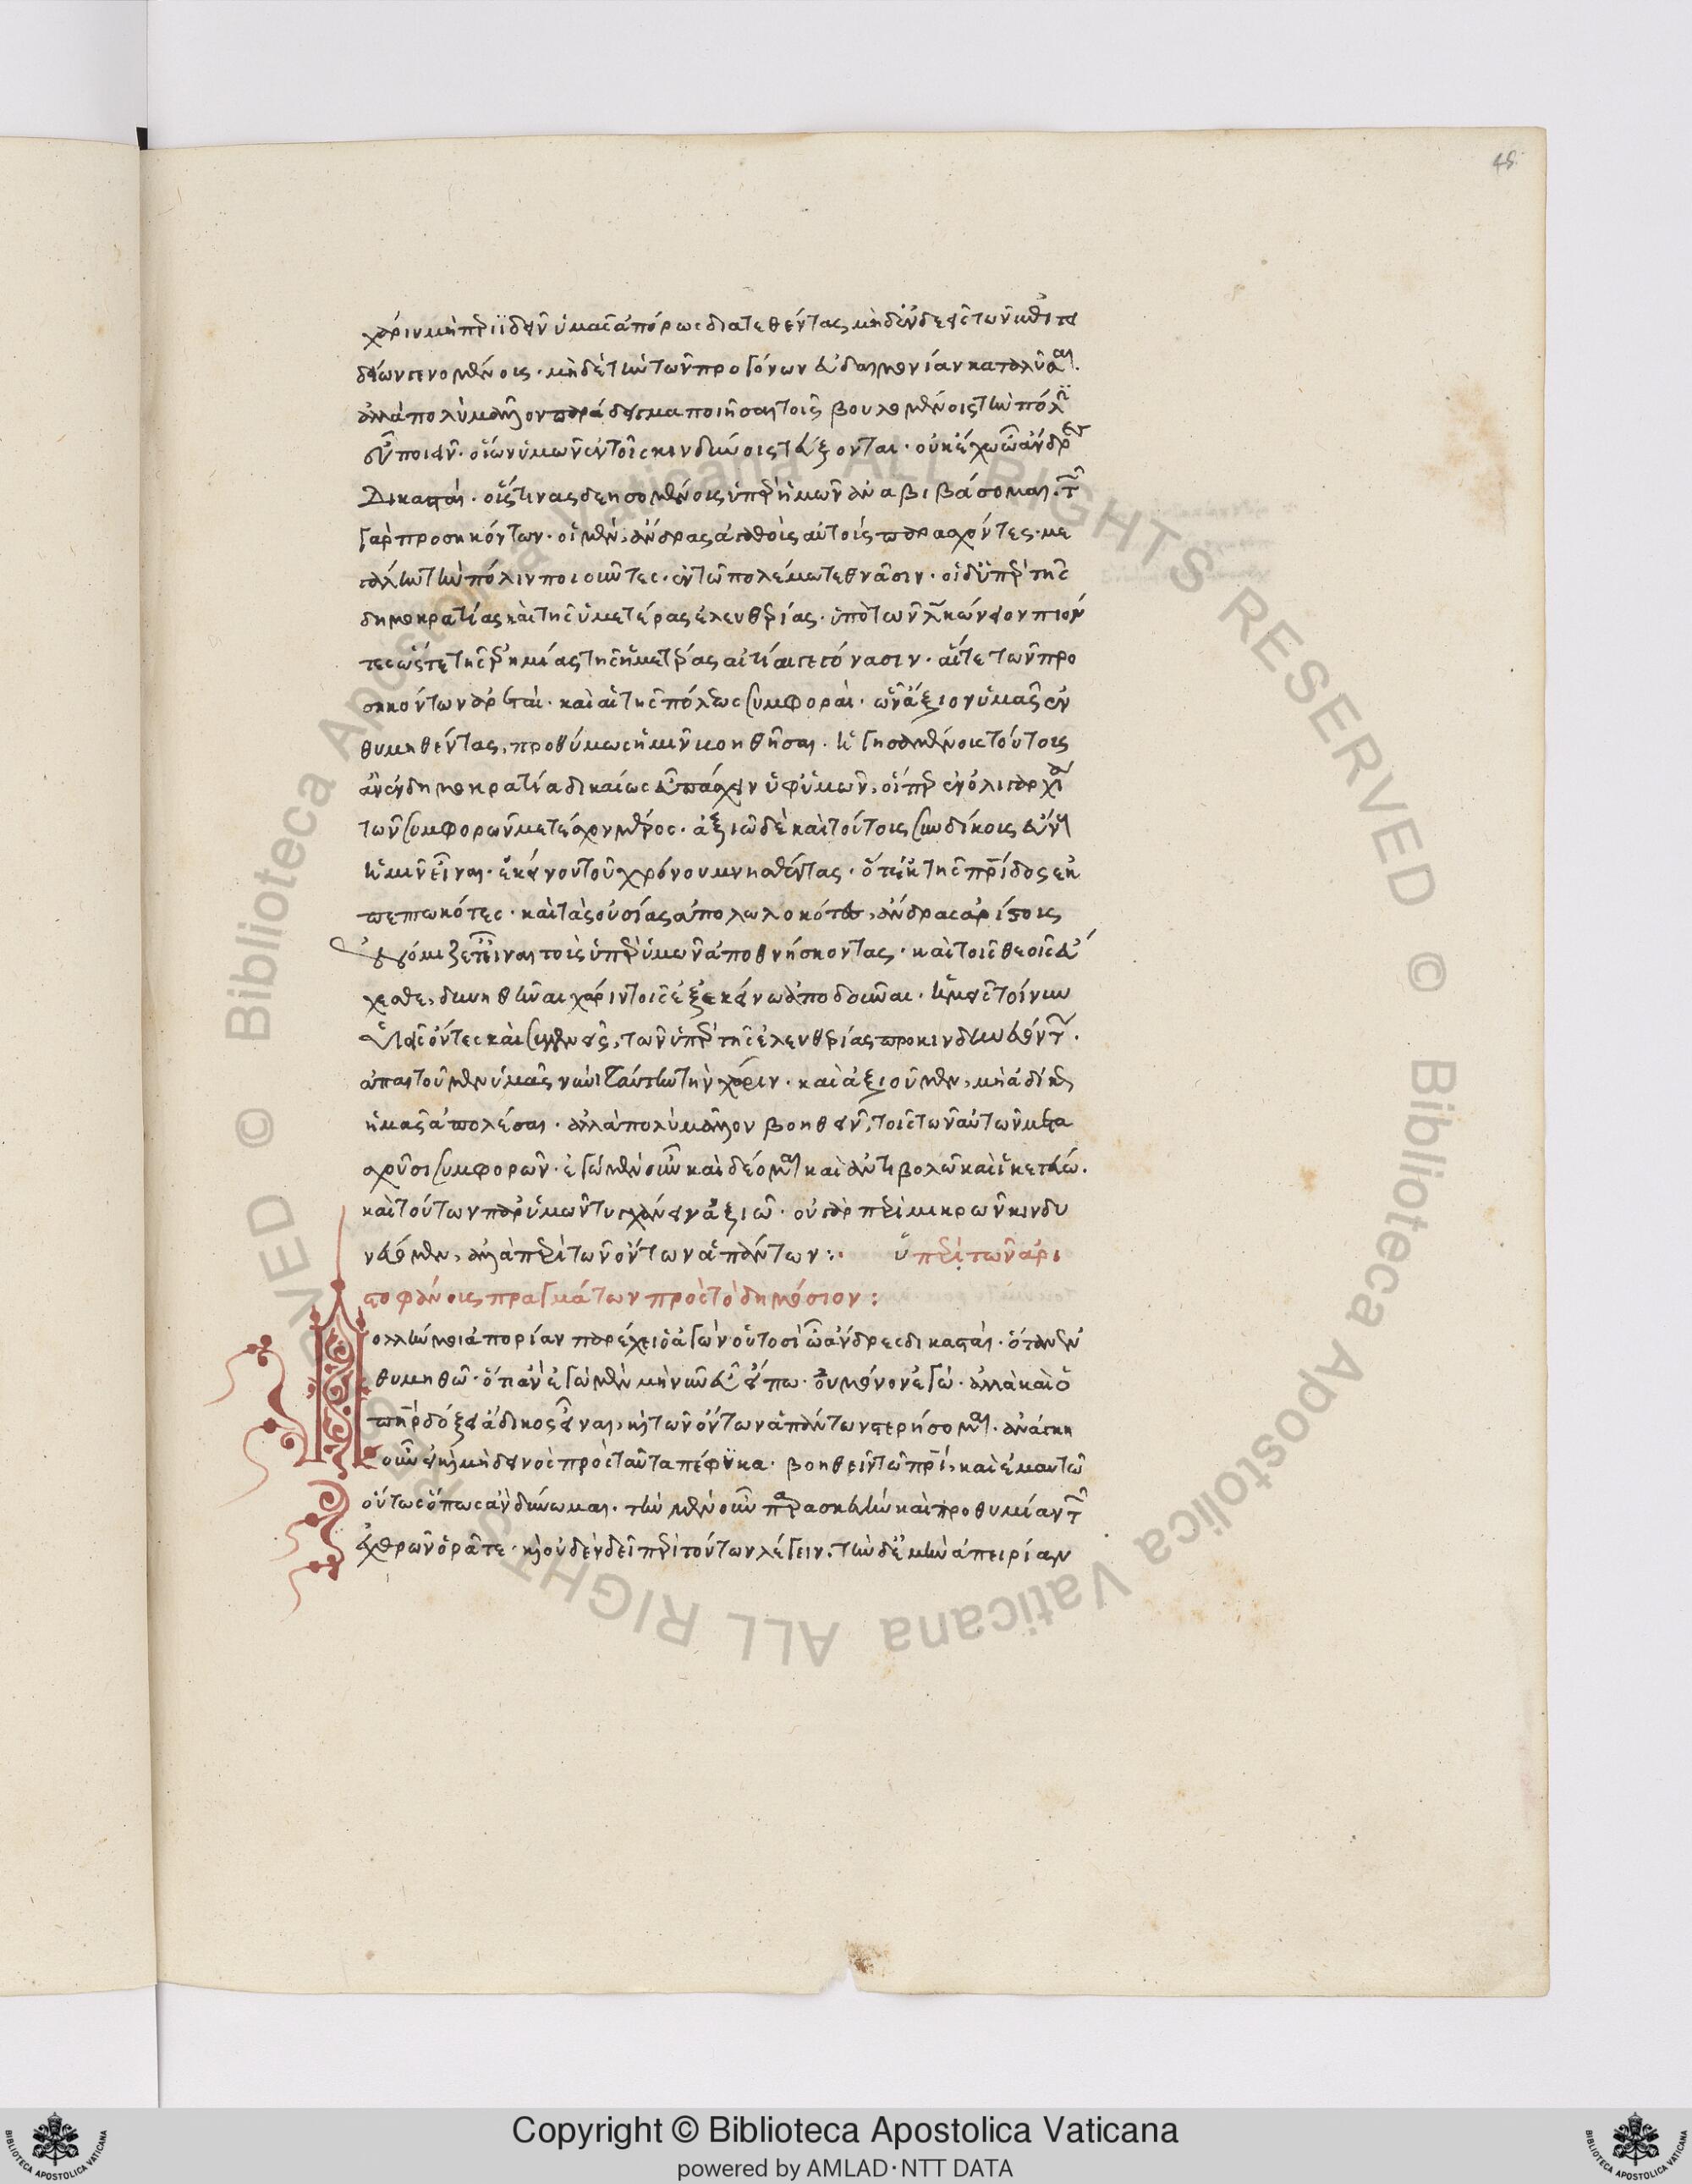 48
χάριν μὴ περιϊδεῖν ὑμᾶς ἀπόρως διατεθέντας, μηδ' ἐνδεεῖς τῶν ἐπιτη
δείων γενομένους· μηδὲ τὴν τῶν προγόνων εὐδαιμονίαν καταλῦσαι.
ἀλλὰ πολὺ μᾶλλον παράδειγμα ποιῆσαι τοῖς βουλομένοις τὴν πόλιν
εὖ ποιεῖν· οἵων ὑμῶν ἐν τοῖς κινδύνοις τεύξονται· οὐκ ἔχω ὦ ἄνδρες
Δικασταί· οὕς τινας δεησομένους ὑπὲρ ἡμῶν ἀναβιβάσομαι. τῶν
γὰρ προσηκόντων· οἱ μὲν, ἄνδρας ἀγαθοὺς αὑτοὺς παρασχόντες· με
γάλην τὴν πόλιν ποιοῦντες· ἐν τῷ πολέμω τεθνᾶσιν· οἱ δ' ὑπὲρ τῆς
δημοκρατίας καὶ τῆς ὑμετέρας ἐλευθερίας· ὑπὸ τῶν λ κώνειον πιόν
τες ὥστε τῆς ἐρημίας τῆς ἡμετέρας αἰτίαι γεγόνασιν· αἵ τε τῶν προ
σηκόντων ἀρεταὶ· καὶ αἱ τῆς πόλεως συμφοραὶ· ὧν ἄξιον ὑμᾶς ἐν
θυμηθέντας, προθύμως ἡμῖν βοηθῆσαι. ἡγησαμένους τούτους
ἂν ἐν δημοκρατία δικαίως εὖ πάσχειν ὑφ' ὑμῶν, οἵπερ ἐν ὀλιγαρχία
τῶν συμφορῶν μετέσχον μέρος· ἀξιῶ δὲ καὶ τούτους συνδίκους εὔνους
ἡμῖν εἶναι. ἐκείνου τοῦ χρόνου μνησθέντας· ὅτ' ἐκ τῆς πατρίδος ἐκ
πεπτωκότες· καὶ τὰς οὐσίας ἀπολωλεκότες, ἄνδρας ἀρίστους
ἐνόμιζετ' εἶναι τοὺς ὑπὲρ ὑμῶν ἀποθνήσκοντας· καὶ τοῖς θεοῖς εὔ
χεσθε, δυνηθῆναι χάριν τοῖς ἐξ ἐκείνων ἀποδοῦναι. ἡμεῖς τοίνυν
υἱεῖς ὄντες καὶ συγγενεῖς, τῶν ὑπὲρ τῆς ἐλευθερίας προκινδυνευόντων.
ἀπαιτοῦμεν ὑμᾶς νυνὶ ταύτην τὴν χάριν. καὶ ἀξιοῦμεν, μὴ ἀδίκως
ἡμᾶς ἀπολέσαι. ἀλλὰ πολὺ μᾶλλον βοηθεῖν, τοῖς τῶν αὐτῶν μετα
σχοῦσι συμφορῶν· ἐγὼ μὲν οὖν καὶ δέομαι καὶ ἀντιβολῶ καὶ ἱκετεύω.
καὶ τούτων παρ' ὑμῶν τυγχάνειν ἀξιῶ· οὐ γὰρ περὶ μικρῶν κινδυ
νεύομεν, ἀλλὰ περὶ τῶν ὄντων ἁπάντων:· ὑπὲρ τῶν ἀρι
στοφάνους πραγμάτων πρὸς τὸ δημόσιον:
Πολλήν μοι ἀπορίαν παρέχει ὁ ἀγὼν οὑτοσὶ ὦ ἄνδρες δικασταί. ὅταν ἐν
θυμηθῶ· ὅτι ἂν ἐγὼ μὲν μὴ νῦν εὖ εἴπω· οὐ μόνον ἐγώ· ἀλλὰ καὶ ὁ
πατὴρ δόξει ἄδικος εἶναι, καὶ τῶν ὄντων ἁπάντων στερήσομαι. ἀνάγκη
οὖν εἰ καὶ μὴ δεινὸς πρὸς ταῦτα πέφυκα· βοηθεῖν τῷ πατρί, καὶ ἐμαυτῷ
οὕτως ὅπως ἂν δύνωμαι. τὴν μὲν οὖν παρασκευὴν καὶ προθυμίαν τῶν
ἐχθρῶν ὁρᾶτε· καὶ οὐδὲν δεῖ περὶ τούτων λέγειν. τὴν δ' ἐμὴν ἀπειρίαν
Copyright © Biblioteca Apostolica Vaticana
powered by AMLAD·NTT DATA